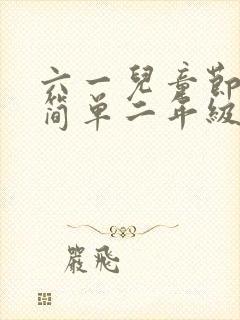 六一兒童節
簡單二年級
嚴飛